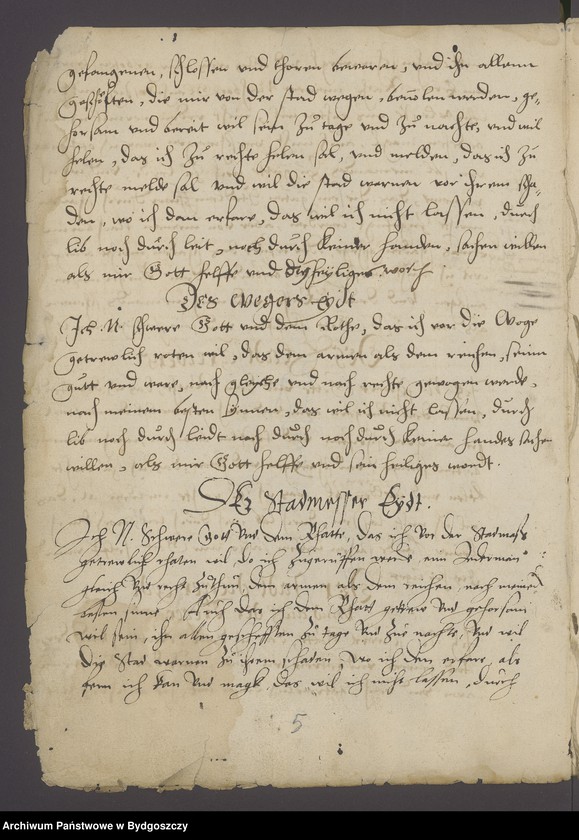 gefangenen, schlossen vnd thoren bewaren, vnd ihn allenn
geschefften, die mir von der stad wegen, beuolen werden, ge-
horsam vnd bereit wil sein zu tage vnd zu nachte, vnd wil
helen, das ich zu rechte helen sal, vnd melden, das ich zu
rechte melde sal vnd wil die stad warnen vor ihrem scha-
den, wo ich den erfare, das wil ich nicht lassen, durch
lib noch durch leit, noch durch keiner handen, sachen willen
als mir Gott helffe vnd heyliges wort
Des Wegers Eydt
Ich N. schwere Gott vnd dem Rothe, das ich vor die Woge
getrewlich roten wil, das dem armen als dem reichen, seinn
gutt vnd ware, nach gleiche vnd noch rechte gewogen werde,
nach meinem besten sinnen, das wil ich nicht lassen, durch
lib noch durch leidt noch durch noch durch keiner handes sachen
willen, als mir Gott helffe vnd sein heiliges wordt.
Der Stadmesser Eydt.
Ich N. Schwere Gott vnd dem Rhatte, das ich vor der Stadmaß
getrewlich rhaten wil, do ich zugeruffen werde ein Jederman
gleich vnd recht zuthun, dem armen als dem reichen, nach meinem
besten sinne Auch das ich dem Rhate getrew vnd gehorsam
wil sein, ihn allen geschefften zu tage vnd zue nachte, vnd wil
die Stad warnen zu ihrem schaden, wo ich den erfare, als
fern ich kan vnd magk, das wil ich nicht lassen, durch
5
Archiwum Państwowe w Bydgoszczy